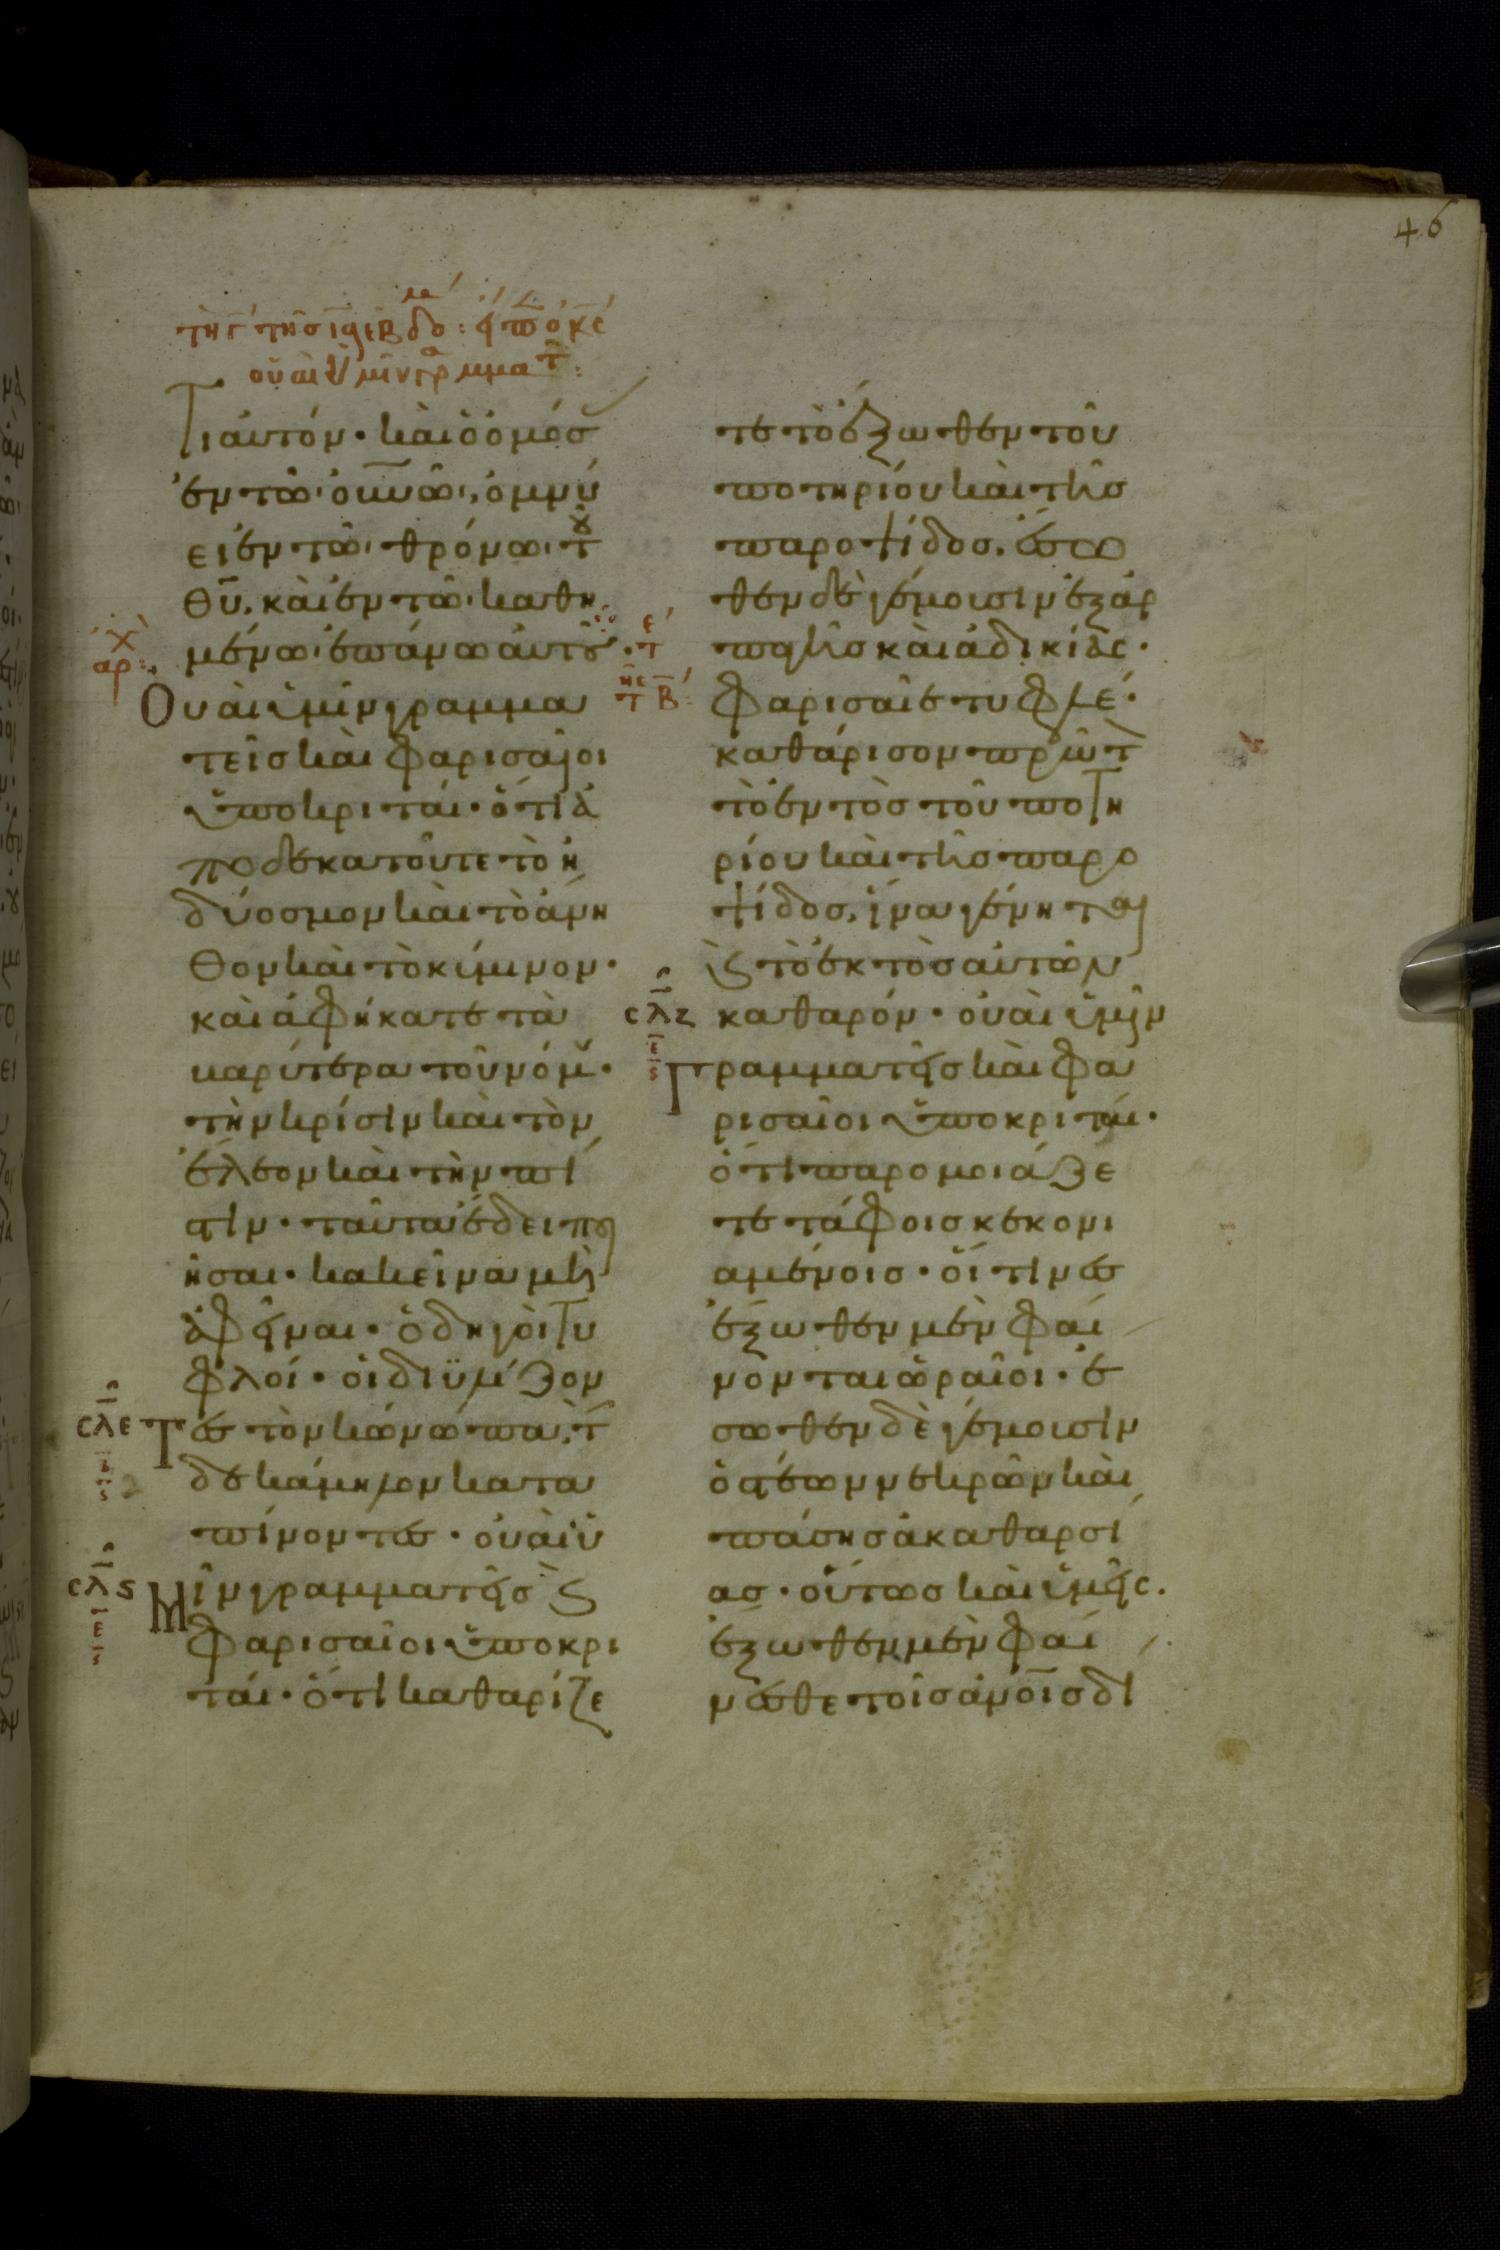 46
οὐαὶ ὑμῖν γραμματ
τιαυτόν· καὶ ὁ ὀμόσ
ἐν τῶ οὐνῶ, ὀμνύ
ει ἐν τῶ θρόνω τοῦ
θῦ, καὶ ἐν τῶ καθη
μένω ἐπάνω αὐτοῦ·
αρχ
Οὐαὶ ὑμῖν γραμμα
τεῖσ καὶ φαρισαῖοι
ὑποκριταί· ὅτι ἀ
ποδεκατοῦτε τὸ ἡ
δύοσμον καὶ τὸ ἄνη
θον καὶ τὸ κύμινον·
καὶ ἀφήκατε τὰ
βαρύτερα τοῦ νόμου·
τὴν κρίσιν καὶ τὸν
ἔλεον καὶ τὴν πί
στιν· ταῦτα ἔδει ποι
ῆσαι· κακεῖνα μὴ
ἀφεῖναι· ὁδηγοὶ τυ
φλοί· οἱ διϋλίζον
σλε Τεσ τὸν κώνωπα, τὴν
δὲ κάμηλον κατα
πίνοντεσ· οὐαὶ ὑ
σλς Μῖν γραμματεῖσ καὶ
φαρισαῖοι ὑποκρι
ταί· ὅτι καθαρίζε
τε τὸ ἔξωθεν τοῦ
ποτηρίου καὶ τῆσ
παροψίδοσ, ἔσω
θεν δὲ γέμουσιν ἐξ ἁρ
παγῆσ καὶ ἀδικίας·
φαρισαῖε τυφλέ·
καθάρισον πρῶτον
τὸ ἐντὸσ τοῦ ποτη
ρίου καὶ τῆσ παρο
ψίδοσ, ἵνα γένηται
καὶ τὸ ἐκτὸσ αὐτῶν
σλζ καθαρόν· οὐαὶ ὑμῖν
Γραμματεῖσ καὶ φα
ρισαῖοι ὑποκριταί·
ὅτι παρομοιάζε
τε τάφοισ κεκονι
αμένοισ· οἵτινεσ
ἔξωθεν μὲν φαί
νονται ὡραῖοι· ἔ
σωθεν δὲ γέμουσιν
ὀστέων νεκρῶν καὶ
πάσησ ἀκαθαρσί
ασ· οὕτωσ καὶ ὑμεῖς.
ἔξωθεν μὲν φαί
νεσθε τοῖσ ἀνοῖσ δί